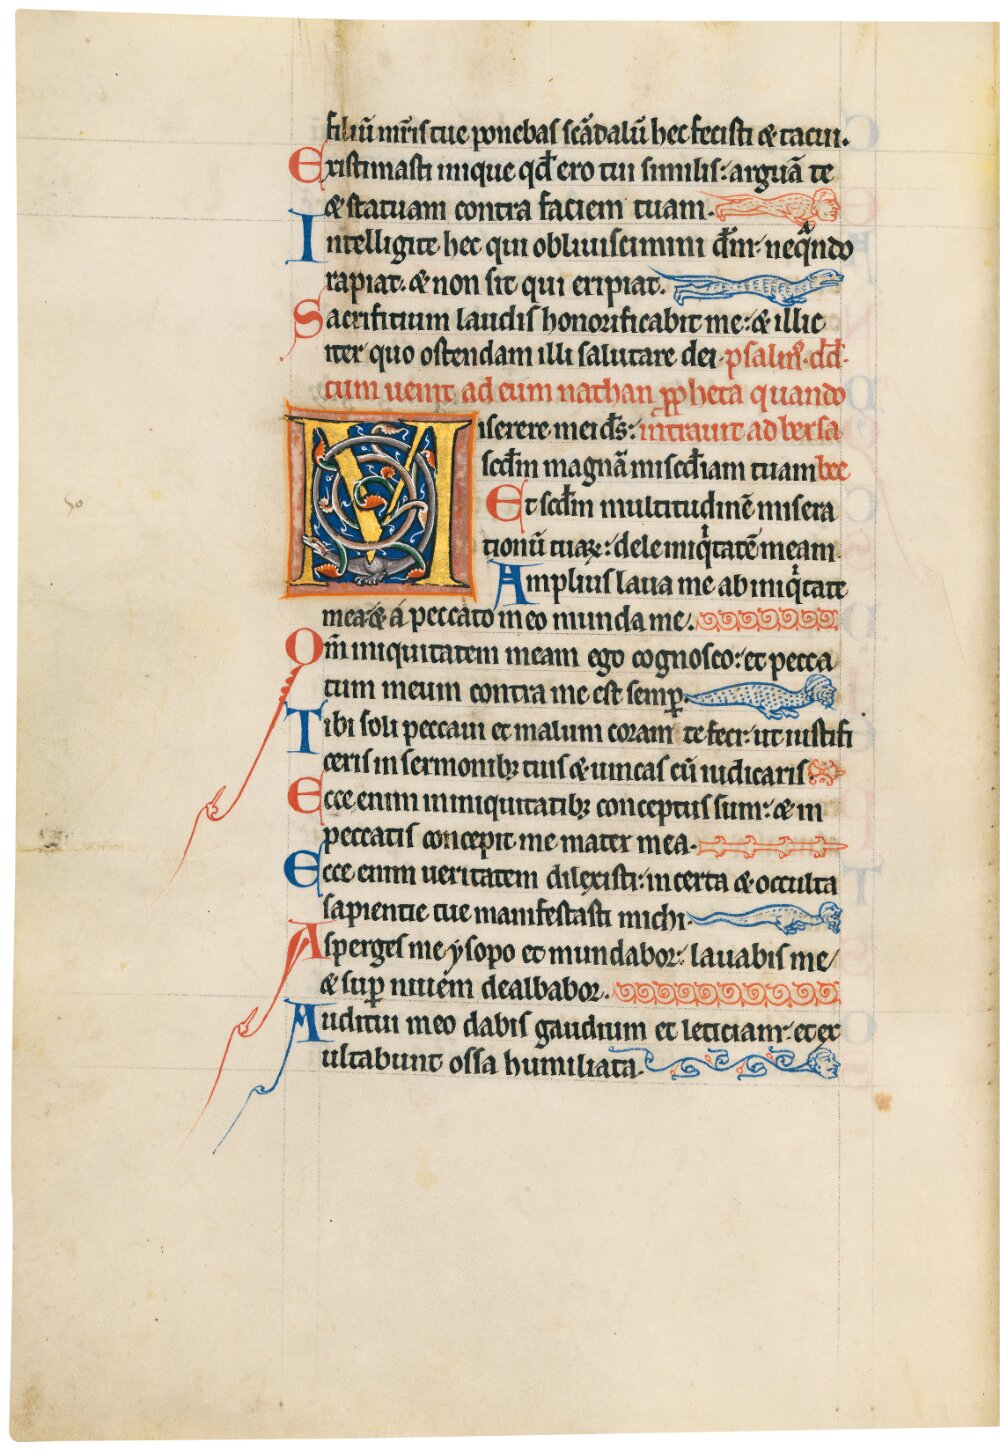 filiū mr̄is tue ponebas scādalū hec fecisti & tacui.
Existimasti inique qđ ero tui similis: arguā te
& statuam contra faciem tuam.
Intelligite hec qui obliuiscimini dm̄: neq̄ndo
rapiat. & non sit qui eripiat.
Sacrifitium laudis honorificabit me: & illic
iter quo ostendam illi salutare dei. psalm̄. dd̄.
cum uenit ad eum nathan ꝓpheta quando
Miserere mei ds̄: intrauit ad bersa
scđm magnā misc̄diam tuam bee
Et scđm multitudinē misera
tionū tuaꝝ: dele iniqͥtatē meam.
Amplius laua me ab iniqͥtate
mea & á peccato meo munda me.
Om̄ iniquitatem meam ego cognosco: et pecca
tum meum contra me est semꝑ.
Tibi soli peccaui et malum coram te feci: ut iustifi
ceris in sermonibꝫ tuis & uincas cū iudicaris
Ecce enim in iniquitatibꝫ conceptus sum: & in
peccatis concepit me mater mea.
Ecce enim ueritatem dilexisti: incerta & occulta
sapientie tue manifestasti michi.
Asperges me ysopo et mundabor: lauabis me
& suꝑ niuem dealbabor.
Auditui meo dabis gaudium et leticiam: et ex
ultabunt ossa humiliata.